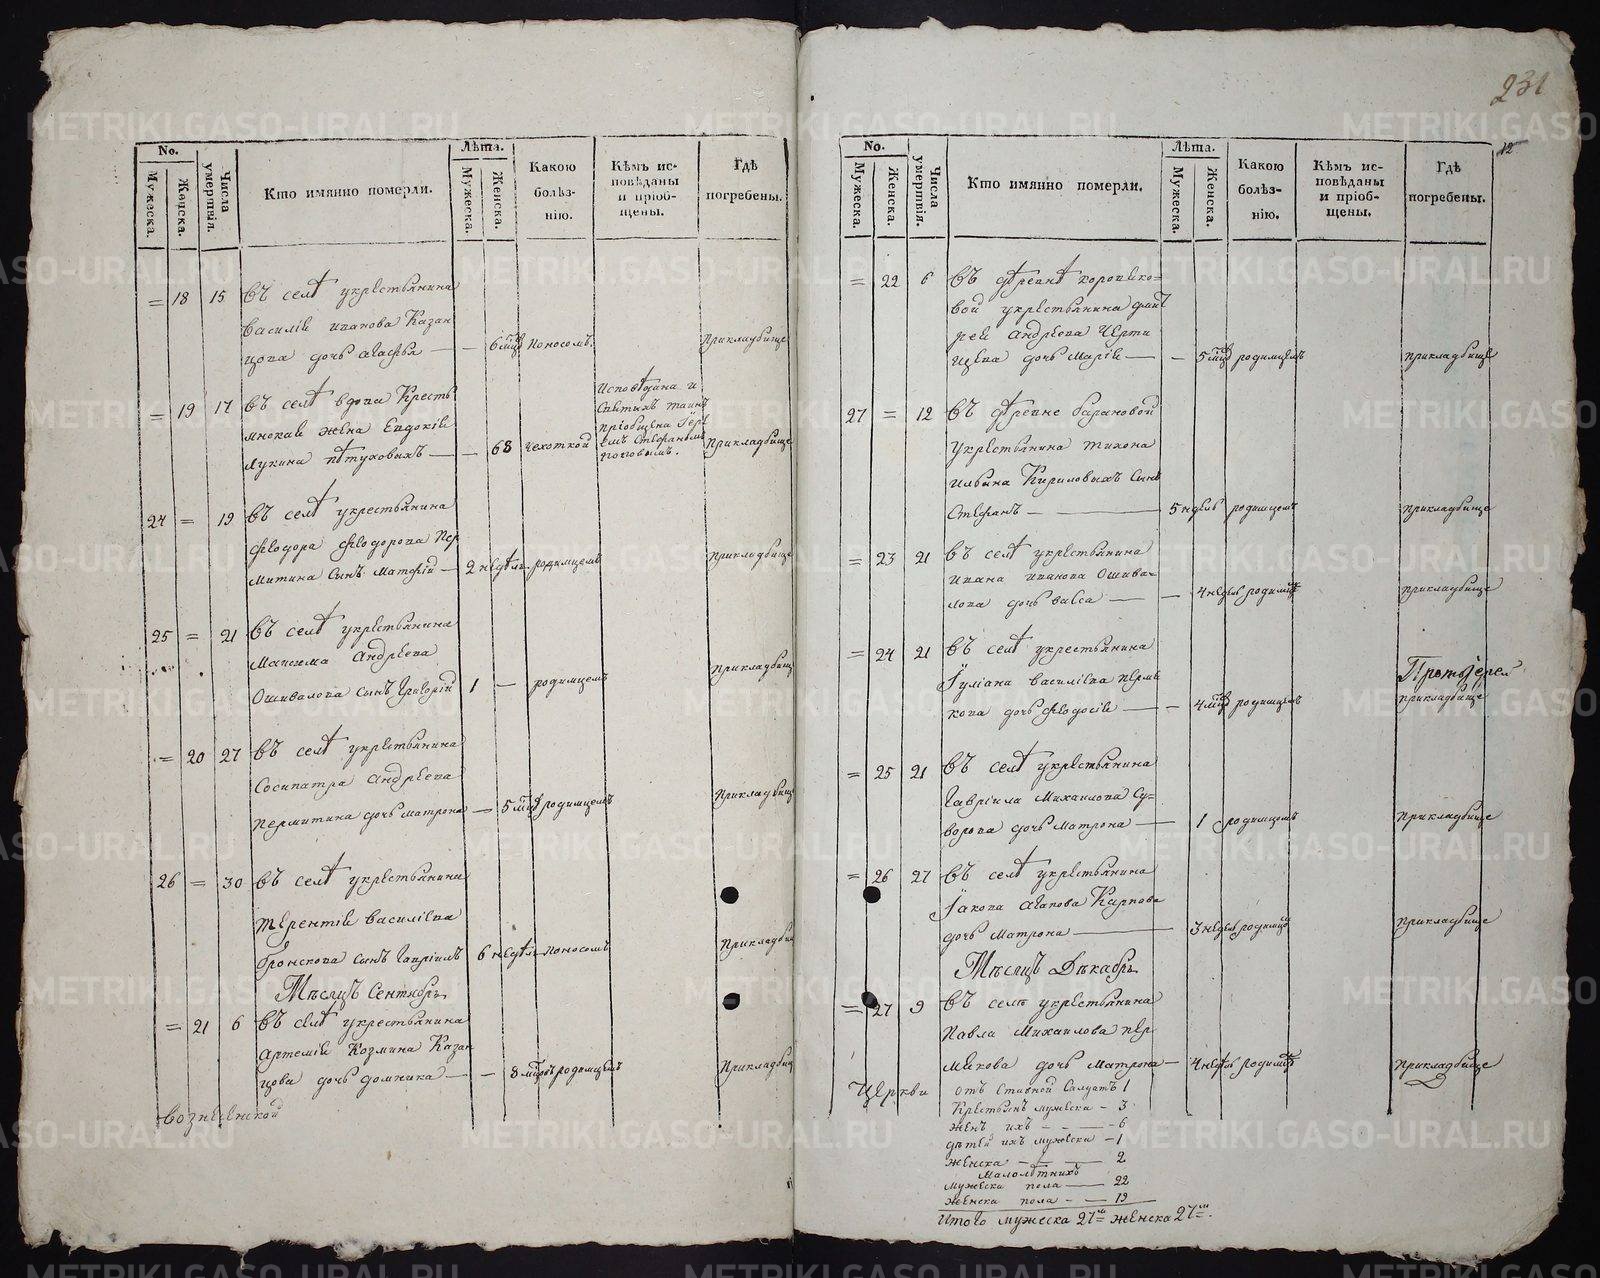 231
12
No.
Мужеска.
Женска.
Числа умертвія.
Кто имянно померли.
Лѣта.
Мужеска.
Женска.
Какою болѣз-
нію.
Кѣмъ ис-
повѣданы
и пріоб-
щены.
Гдѣ
погребены.
= 18 15 Въ селѣ укрестьянина
Василія иванова Казан
цова дочь агафья — — 6 мцъ поносомъ. прикладбище
= 19 17 Въ селѣ вдова Кресть
янская жена Евдокія
Лукина пѣтуховыхъ — — 68 чехоткой
Исповѣдана и
святыхъ таинъ
пріобщена Іере
емъ Стефаномъ
поповымъ.
прикладбище
24 = 19 Въ селѣ укрестьянина
Феодора Феодорова Пер
митина сынъ Матфій — 2 недѣль родимцемъ прикладбище
25 = 21 Въ селѣ укрестьянина
Максима Андреева
Ошивалова сынъ Григорій 1 — родимцемъ прикладбищ
= 20 27 Въ селѣ укрестьянина
Сосипатра Андреева
пермитина дочь матрона — 5 мцъ родимцемъ прикладбищ
26 = 30 Въ селѣ укрестьянина
Терентія Василіева
Бронскова сынъ Гавріилъ 6 недѣль поносомъ прикладби
Мѣсяцъ Сентябрь
= 21 6 Въ селѣ укрестьянина
Артемія Козмина Казан
цова дочь домника — — 8 мцовъ родимцемъ прикладбищ
Вознесенской
No.
Мужеска.
Женска.
Числа умертвія.
Кто имянно померли.
Лѣта.
Мужеска.
Женска.
Какою
болѣз-
нію.
Кѣмъ ис-
повѣданы
и пріоб-
щены.
Гдѣ
погребены.
= 22 6 Въ дѣревнѣ коропско=
вой укрестьянина дмит
рея Андреева Черти
щева дочь Марія — — 5 мцъ родимцемъ прикладбище
27 = 12 Въ дѣревне барановой
укрестьянина тихона
ильина Кириловыхъ сынъ
Стефанъ — 5 недѣль родимцемъ прикладбище
= 23 21 Въ селѣ укрестьянина
ивана иванова Ошива=
лова дочь васса — — 4 недѣль родимце прикладбище
= 24 21 Въ селѣ укрестьянина
Іуліана Василіева перми
кова дочь феодосія — — 4 мцъ родимцемъ
Протоіерей
прикладбище
= 25 21 Въ селѣ укрестьянина
Гавріила Михаилова Су=
ворова дочь матрона — 1 родимцемъ прикладбище
= 26 27 Въ селѣ укрестьянина
Іакова агапова Карпова
дочь Матрона — 3 недель родимцо прикладбище
Мѣсяцъ Дѣкабрь
= 27 9 Въ селѣ укрестьянина
Павла Михаилова пер
мякова дочь матрона — 4 недѣль родимце прикладбище
Церкви
отъ ставной Салдатъ 1
Крестьянъ мужеска — 3
женъ ихъ — — — 6
дѣтей ихъ мужеска — 1
женска — — — 2
Малолѣтнихъ
мужеска пола — 22
женска пола — — 19
Итого мужеска 27 = женска 27 =.